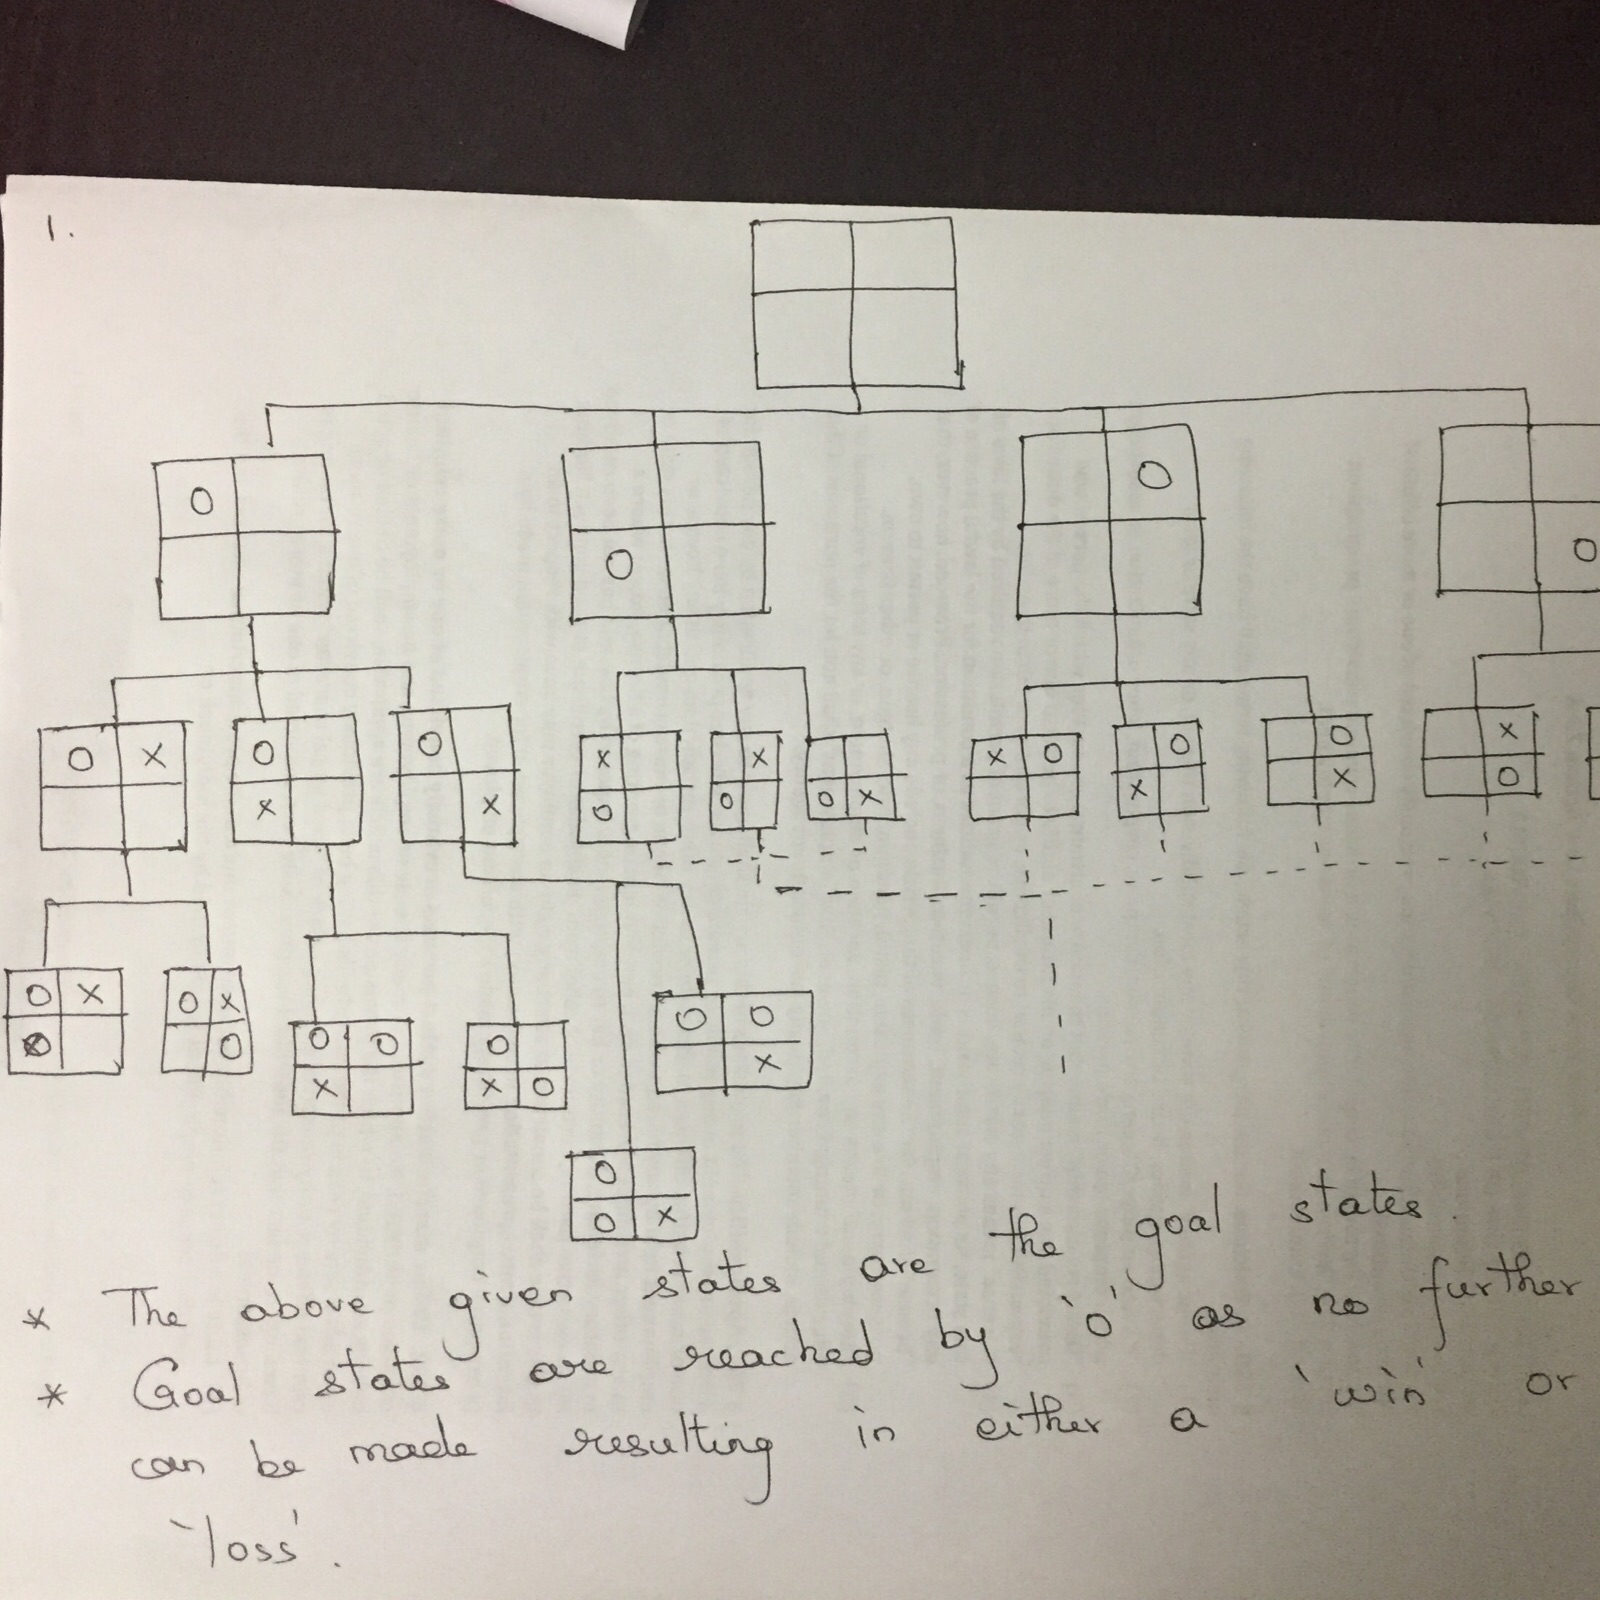 1.
O
O
O
O
O X
O
X
O
X
X
O
X
O
O X
X O
O
X
O
X
X
O
O X
O
O X
O
O O
X
O
X O
O O
X
O
O X
* The above given states are the goal states.
* Goal states are reached by 'O' as no further
can be made resulting in either a 'win' or
'loss'.